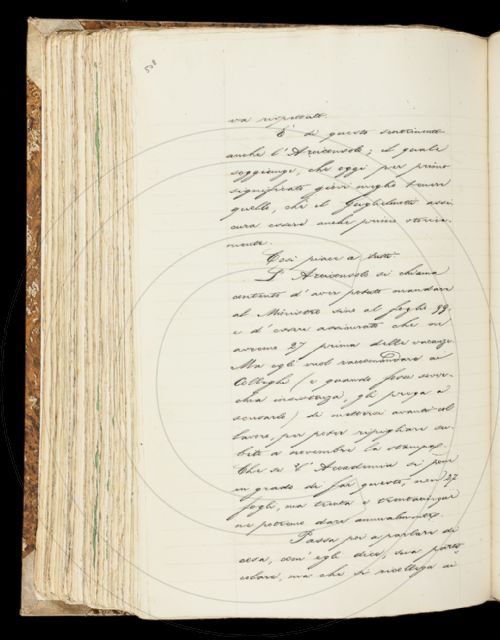 508
va rispettato.
È di questo sentimento
anche l'Arciconsolo; il quale
soggiunge, che oggi per primo
significato giova meglio trarre
quello, che il Guglielmotti assi
cura essere anche primo storica-
mente.
Così piace a tutti.
L'Arciconsolo si chiama
contento d'aver potuto mandare
al Ministro sino al foglio 99,
e d'essere assicurato che ne
avremo 27 prima delle vacanze.
Ma egli vuol raccomandare ai
Colleghi (e quando fosse sover-
chia insistenza, gli prega a
scusarlo) di mettersi avanti col
lavoro, per poter ripigliare su-
bito a novembre la stampa.
Che se l'Accademia si pone
in grado di far questo, non 27
fogli, ma trenta e trentacinque
ne potremo dare annualmente.
Passa poi a parlare di
cosa, com'egli dice, sua parti-
colare, ma che si riverisce ai